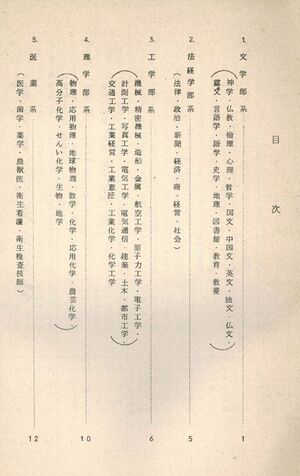 目次
1. 文学部系 1
(神学・仏教・倫理・心理・哲学・国文・中国文・英文・独文・仏文・
露文・言語学・語学・史学・地理・図書館・教育・教養)
2. 法経学部系 5
(法律・政治・新聞・経済・商・経営・社会)
3. 工学部系 6
(機械・精密機械・造船・金属・航空工学・原子力工学・電子工学・
計測工学・写真工学・電気工学・電気通信・建築・土木・都市工学・
交通工学・工業経営・工業意匠・工業化学・化学工学)
4. 理学部系 10
(物理・応用物理・地球物理・数学・化学・応用化学・農芸化学・
高分子化学・せんい化学・生物・地学)
5. 医薬系 12
(医学・歯学・薬学・農獣医・衛生看護・衛生検査技師)